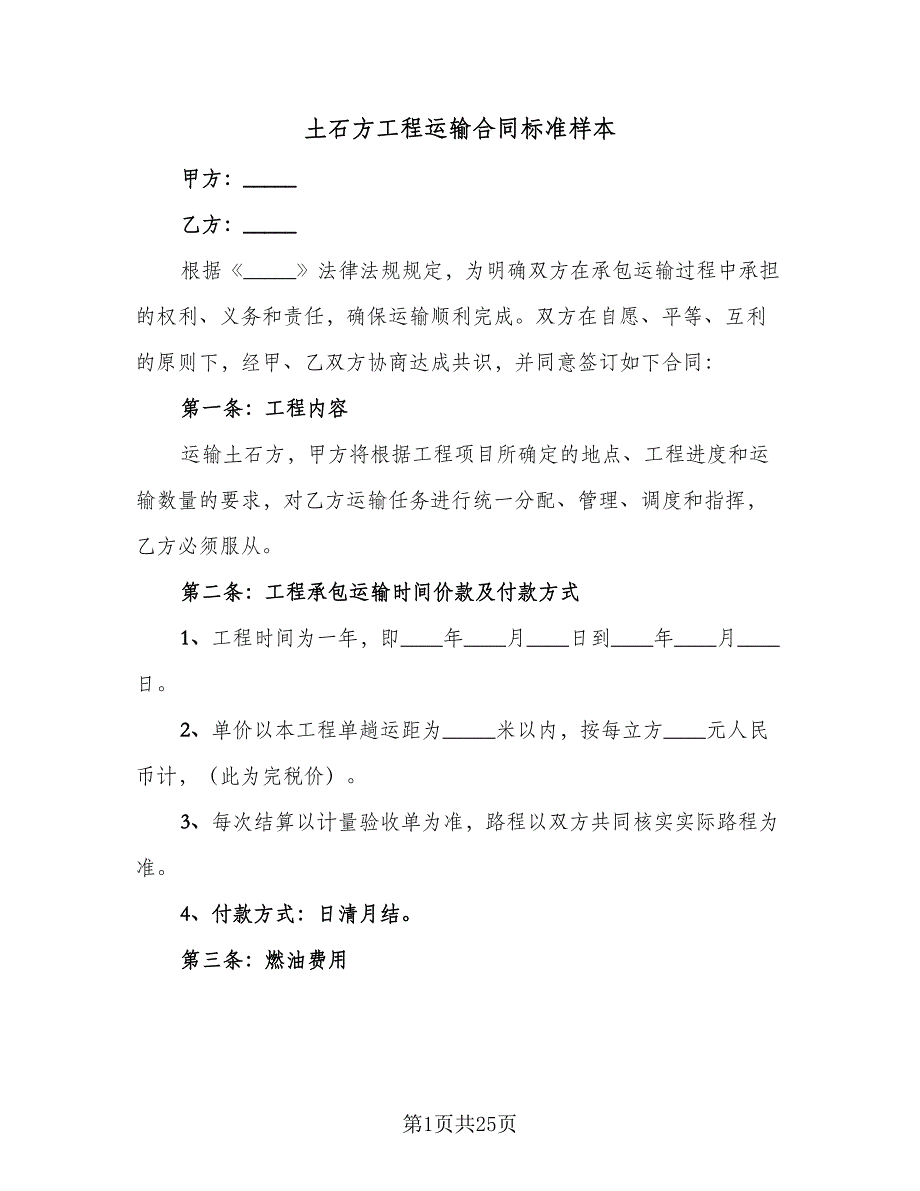 土石方工程运输合同标准样本
甲方：_____
乙方：_____
根据《_____》法律法规规定，为明确双方在承包运输过程中承担
的权利、义务和责任，确保运输顺利完成。双方在自愿、平等、互利
的原则下，经甲、乙双方协商达成共识，并同意签订如下合同：
第一条：工程内容
运输土石方，甲方将根据工程项目所确定的地点、工程进度和运
输数量的要求，对乙方运输任务进行统一分配、管理、调度和指挥，
乙方必须服从。
第二条：工程承包运输时间价款及付款方式
1、工程时间为一年，即____年____月____日到____年____月____
日。
2、单价以本工程单趟运距为_____米以内，按每立方____元人民
币计，（此为完税价）。
3、每次结算以计量验收单为准，路程以双方共同核实实际路程为
准。
4、付款方式：日清月结。
第三条：燃油费用
第1页共25页